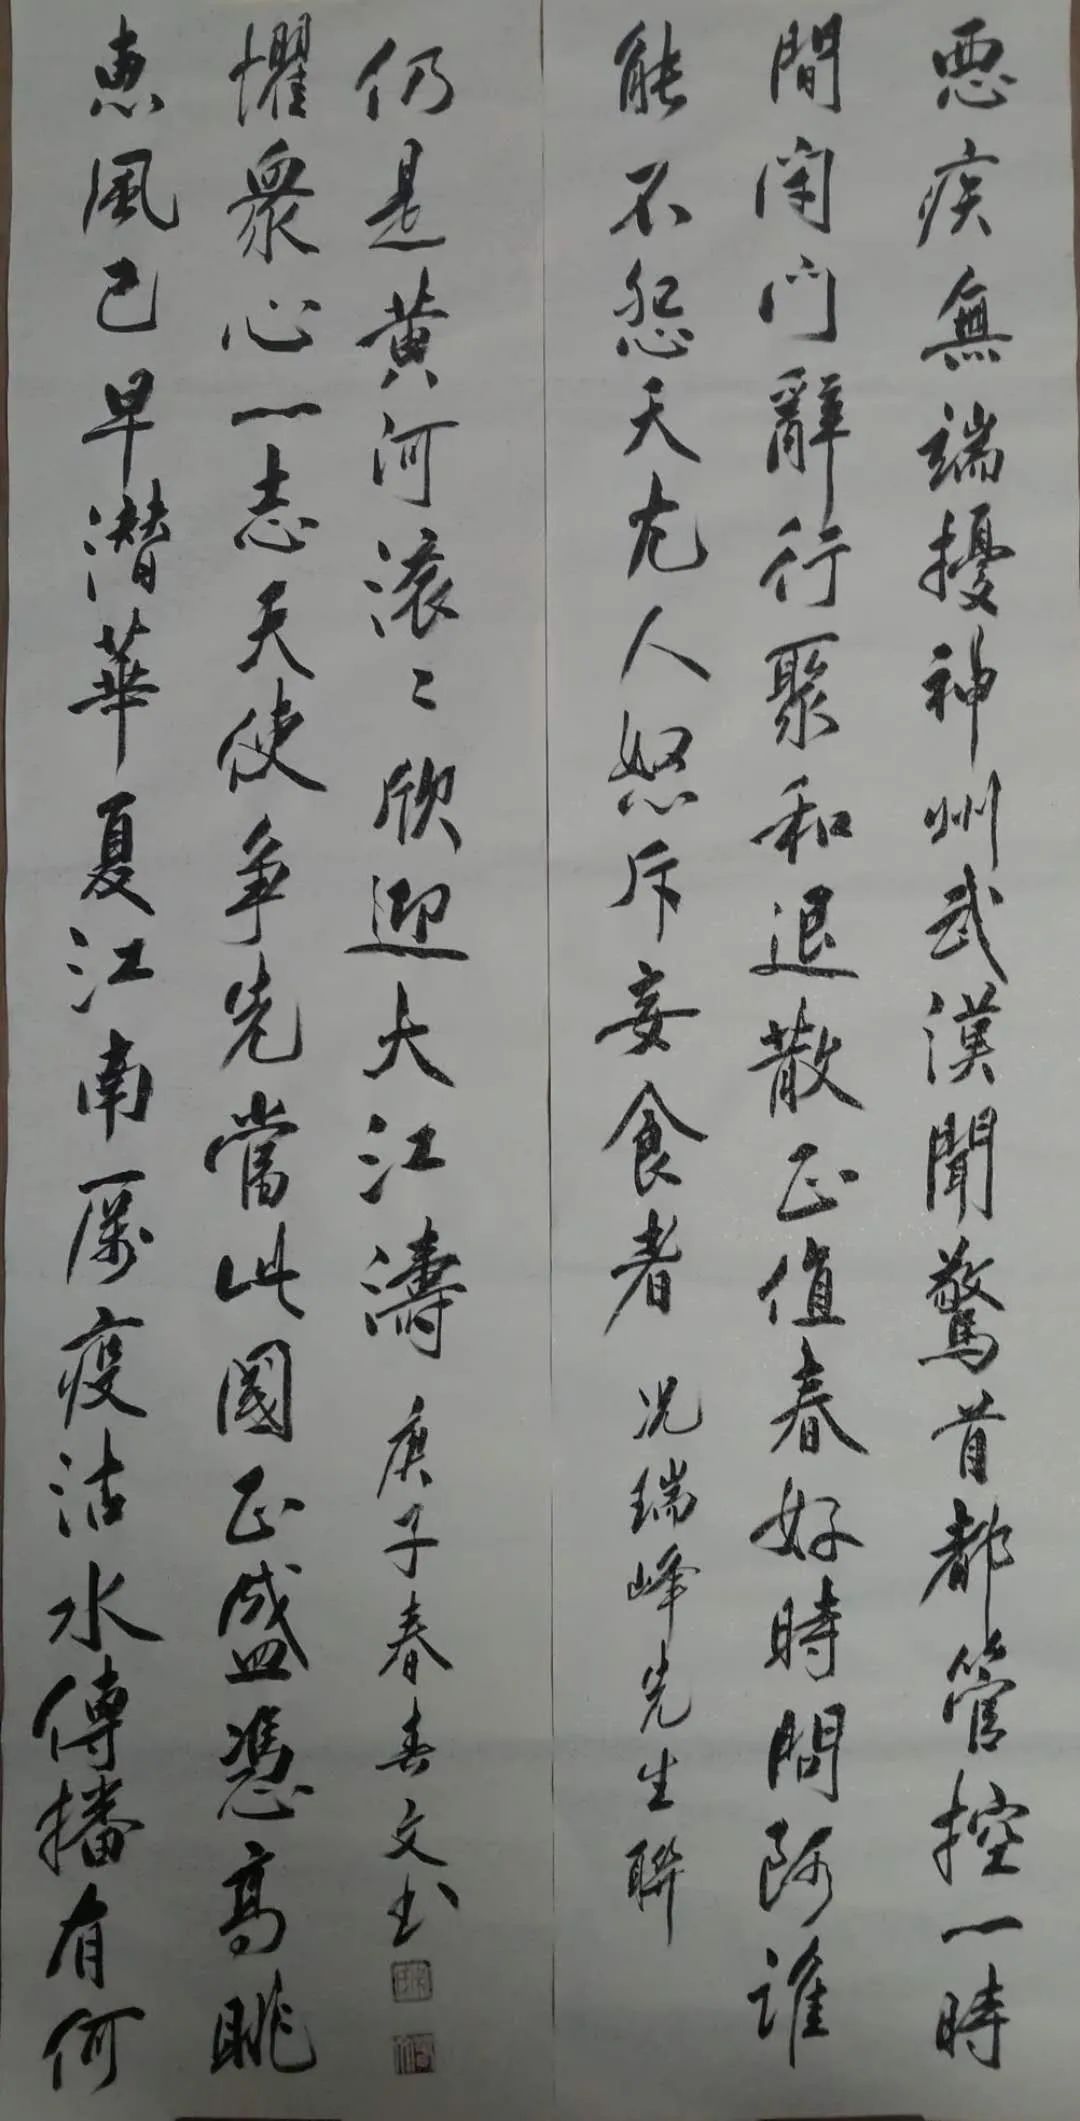 悪疾無端擾神州武漢聞驚首都管控一時
間閇門辭行聚和退散正值春好時問阿誰
能不怨天尤人怒斥妄食者 况瑞峰先生聯
恵風已早潜華夏江南厲疫沽水傳播有何
懼衆心一志天使争先當此國正盛憑高眺
仍是黄河滚〻欣迎大江濤 庚子春春文书